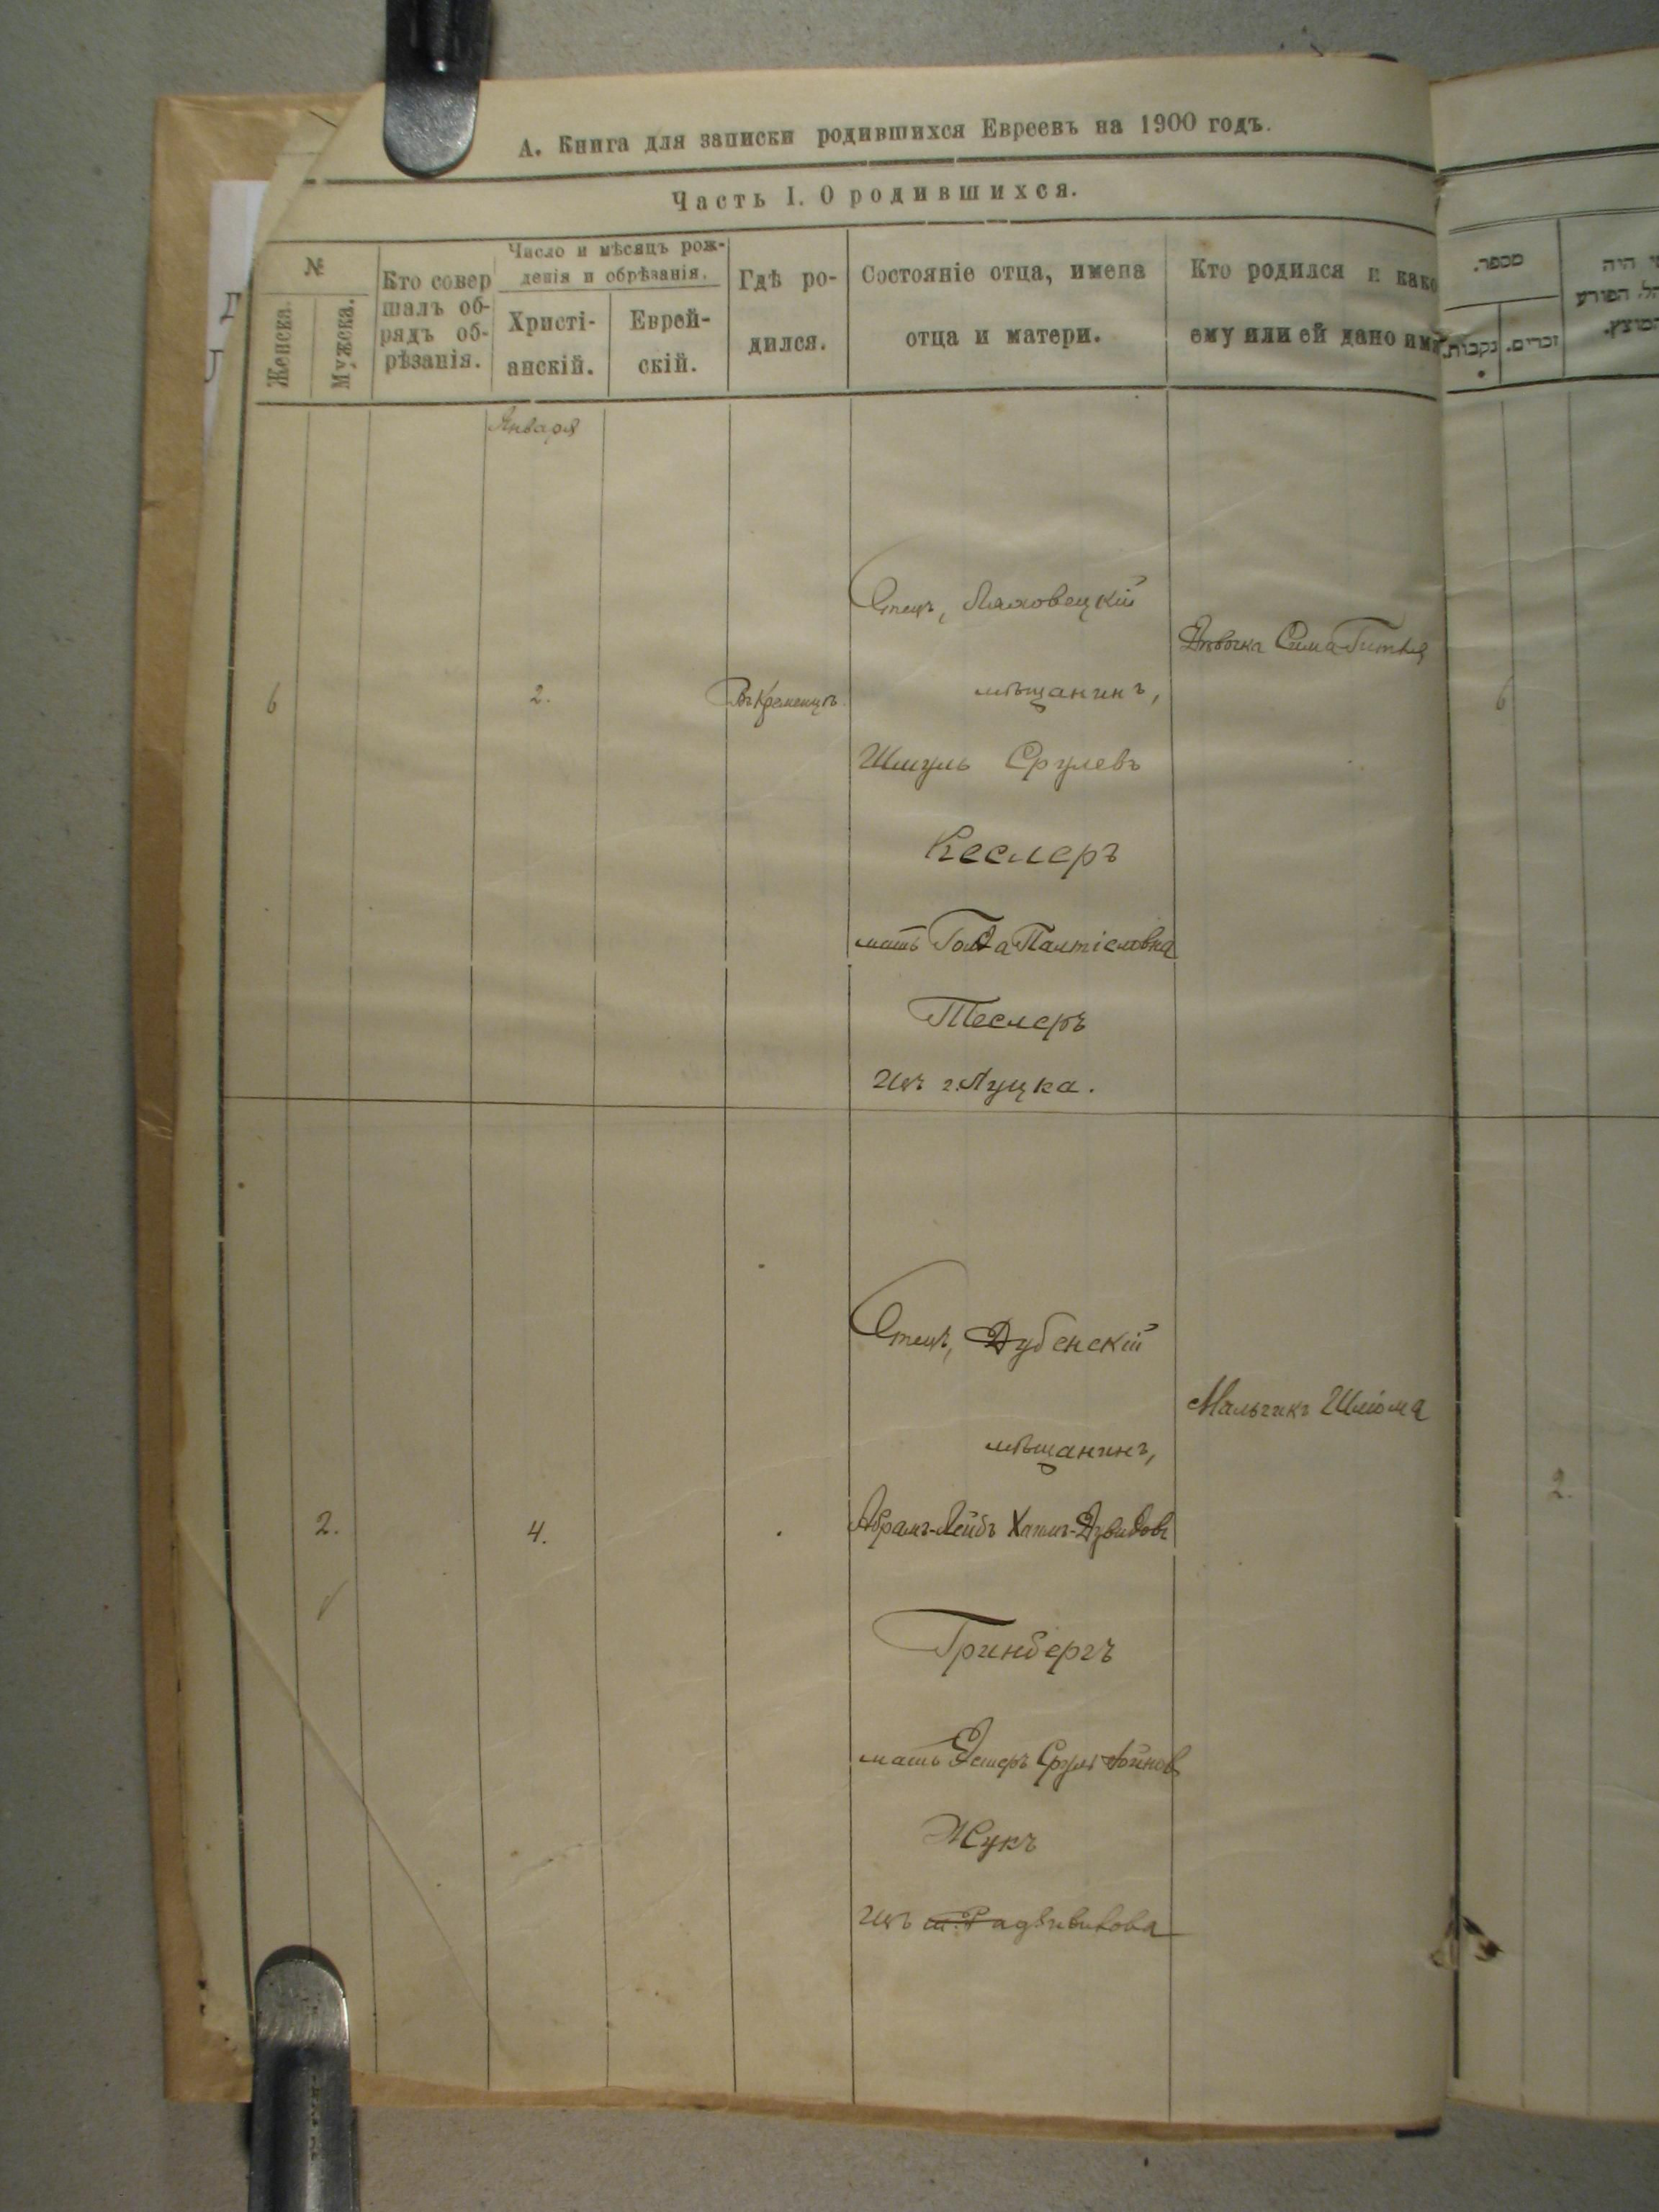 А. Книга для записки родившихся Евреевъ на 1900 годъ.
Часть I. О родившихся.
№
Женска.
Мужска.
Кто совер
шалъ об-
рядъ об-
рѣзанія.
Число и мѣсяцъ рож-
денія и обрѣзанія.
Христі-
анскій.
Еврей-
скій.
Гдѣ ро-
дился.
Состояніе отца, имена
отца и матери.
Кто родился и како
ему или ей дано имя
מספר.
נקבות.
זכרים.
מי היה
הפורע
Января
6
2.
Въ Кременцѣ
Отецъ, Ляховецкій
мѣщанинъ,
Шмуль Срулевъ
Кеслеръ
мать Голда Палтіелевна
Теслеръ
Изъ г. Луцка.
Дѣвочка Сима Гитля
6
2.
4.
Отецъ, Дубенскій
мѣщанинъ,
Абрамъ-Лейбъ Хаимъ-Дувидовъ
Гринбергъ
мать Эстеръ Сруль
Жукъ
Изъ м. Радзивилова
Мальчикъ Шліома
2.